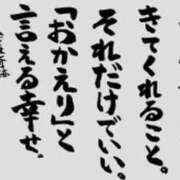 きてくれること。
それだけでいい。
「おかえり」と
言える幸せ。